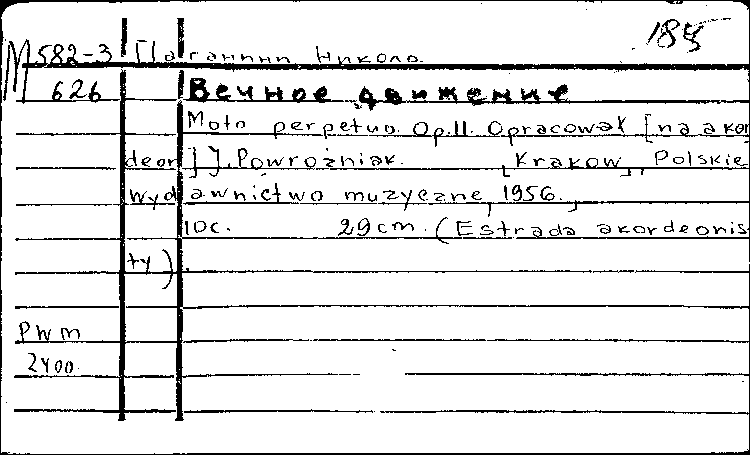 185
М 582-3 Паганини Николо.
626 Вечное движение
Moto perpetuo. Op.11. Opracował [na akor
deon] J. Powrożniak. [Krakow], Polskie
wydawnictwo muzyczne, 1956.
10c. 29cm. (Estrada akordeonis
ty).
PWM
2400